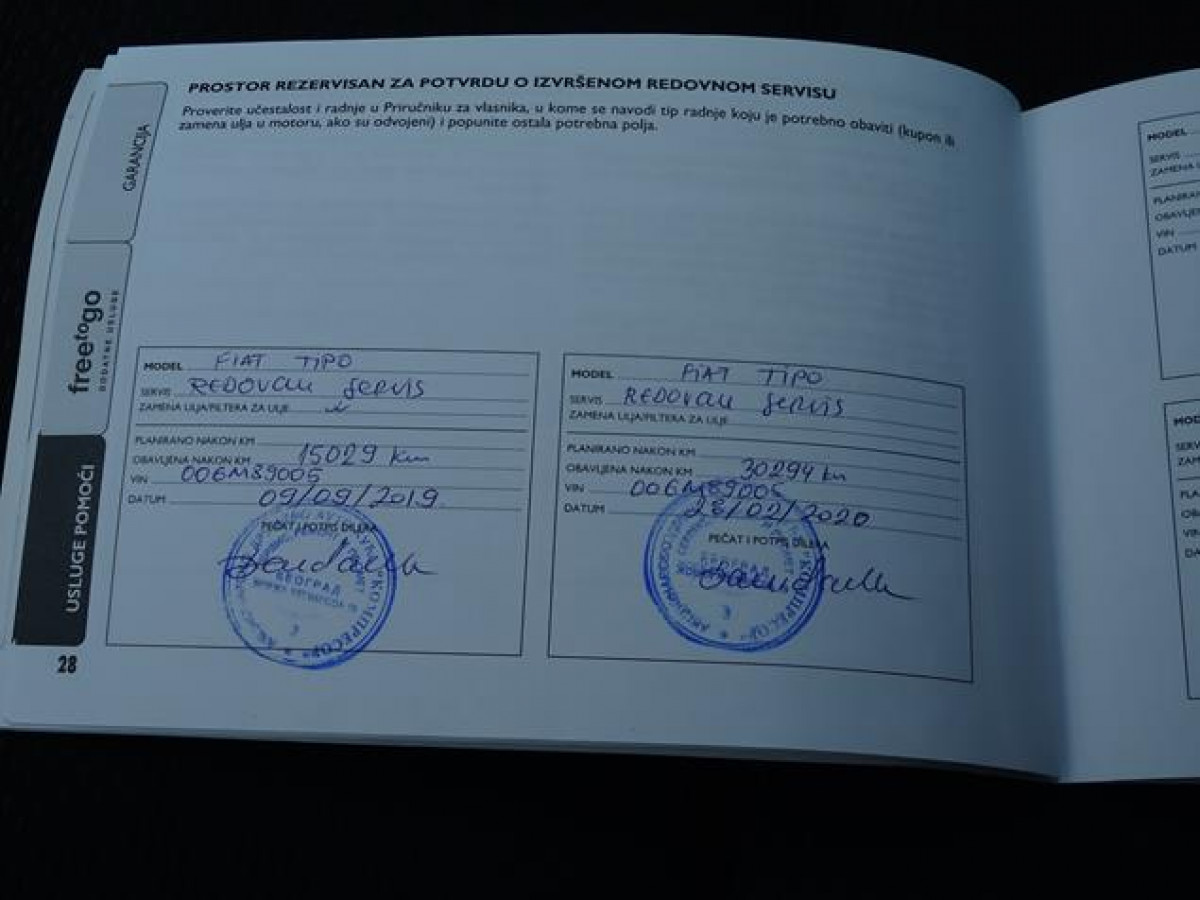 PROSTOR REZERVISAN ZA POTVRDU O IZVRŠENOM REDOVNOM SERVISU
Proverite učestalost i radnje u Priručniku za vlasnika, u kome se navodi tip radnje koju je potrebno obaviti (kupon ili
zamena ulja u motoru, ako su odvojeni) i popunite ostala potrebna polja.
GARANCIJA
freetogo
DODATNE USLUGE
USLUGE POMOĆI
28
MODEL FIAT TIPO
SERVIS REDOVAN SERVIS
ZAMENA ULJA/FILTERA ZA ULJE
PLANIRANO NAKON KM
OBAVLJENA NAKON KM 15029 km
VIN 006M89005
DATUM 09/09/2019.
PEČAT I POTPIS DILERA
БЕОГРАД
"КОМПРЕСОР"
3
MODEL FIAT TIPO
SERVIS REDOVAN SERVIS
ZAMENA ULJA/FILTERA ZA ULJE
PLANIRANO NAKON KM
OBAVLJENA NAKON KM 30294 km
VIN 006M89005
DATUM 28/02/2020
PEČAT I POTPIS DILERA
АКЦИОНАРСКО
БЕОГРАД
"КОМПРЕСОР"
3
MODEL
SERVIS
ZAMENA U
PLANIRAN
OBAVLJEN
VIN
DATUM
MOD
SERV
ZAM
PLA
OB
VIN
DA